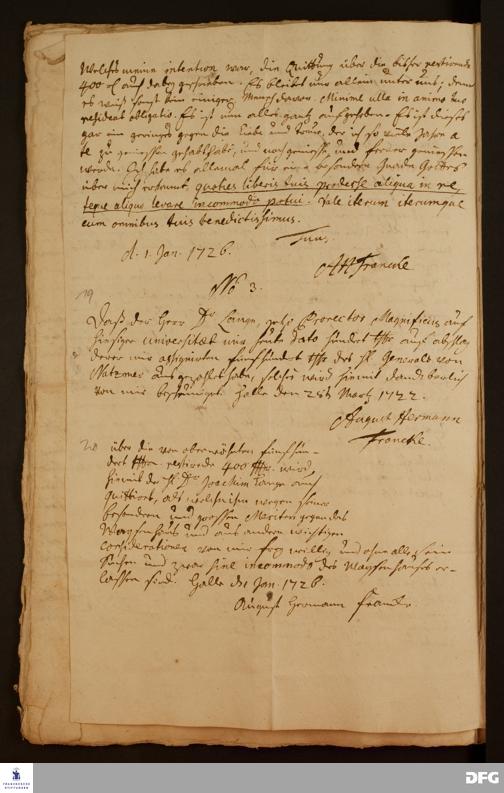 Welches meine intention war, die Quittung über die bisher restirende
400 rl auch dabey geschrieben. Es bleibt nur allein unter uns; denn
es weiß sonst kein einiger Mensch davon. Minime ulla in animo tuo
resideat obligatio. Es ist nun alles gantz aufgehoben. Es ist dieses
gar ein geringes gegen die Liebe und Treue, der ich so viele Jahre a
te zu geniessen gehabt habe, und noch geniesse, und ferner geniessen
werde. Ich habe es allemal für eine besondere Gnade Gottes
über mich erkannt, quoties liberis tuis prodesse aliqua in re,
teque aliquo levare incommodo potui. Vale iterum iterumque
cum omnibus tuis benedictissimus.
Tuus
d. 1. Jan. 1726.
AHFrancke
No 3.
19
Daß der Herr Dr Lange, jetzo Prorector Magnificus auf
hiesiger Universitæt mir heute dato hundert thlr auf abschlag
derer mir assignirten fünfhundert thlr des H. Generals von
Natzmer ausgezahlet habe, solches wird hiemit danckbarlich
von mir bescheiniget. Halle den 28 Martz 1722.
August Hermann
Francke.
20
über die von oberwehnten fünfhun-
dert thlrn restirende 400 thlr. wird
hiemit der H. Dr. Joachim Lange auch
quittiret, als welche ihm wegen seiner
besondern und grossen Meriten gegen das
Waysenhaus und aus andern wichtigen
considerationen von mir frey willig und ohne alle sein
Suchen und zwar sine incommodo des Waysenhauses er-
lassen sind. Halle d. 1 Jan. 1726.
August Hermann Francke
FRANCKESCHE
STIFTUNGEN
DFG